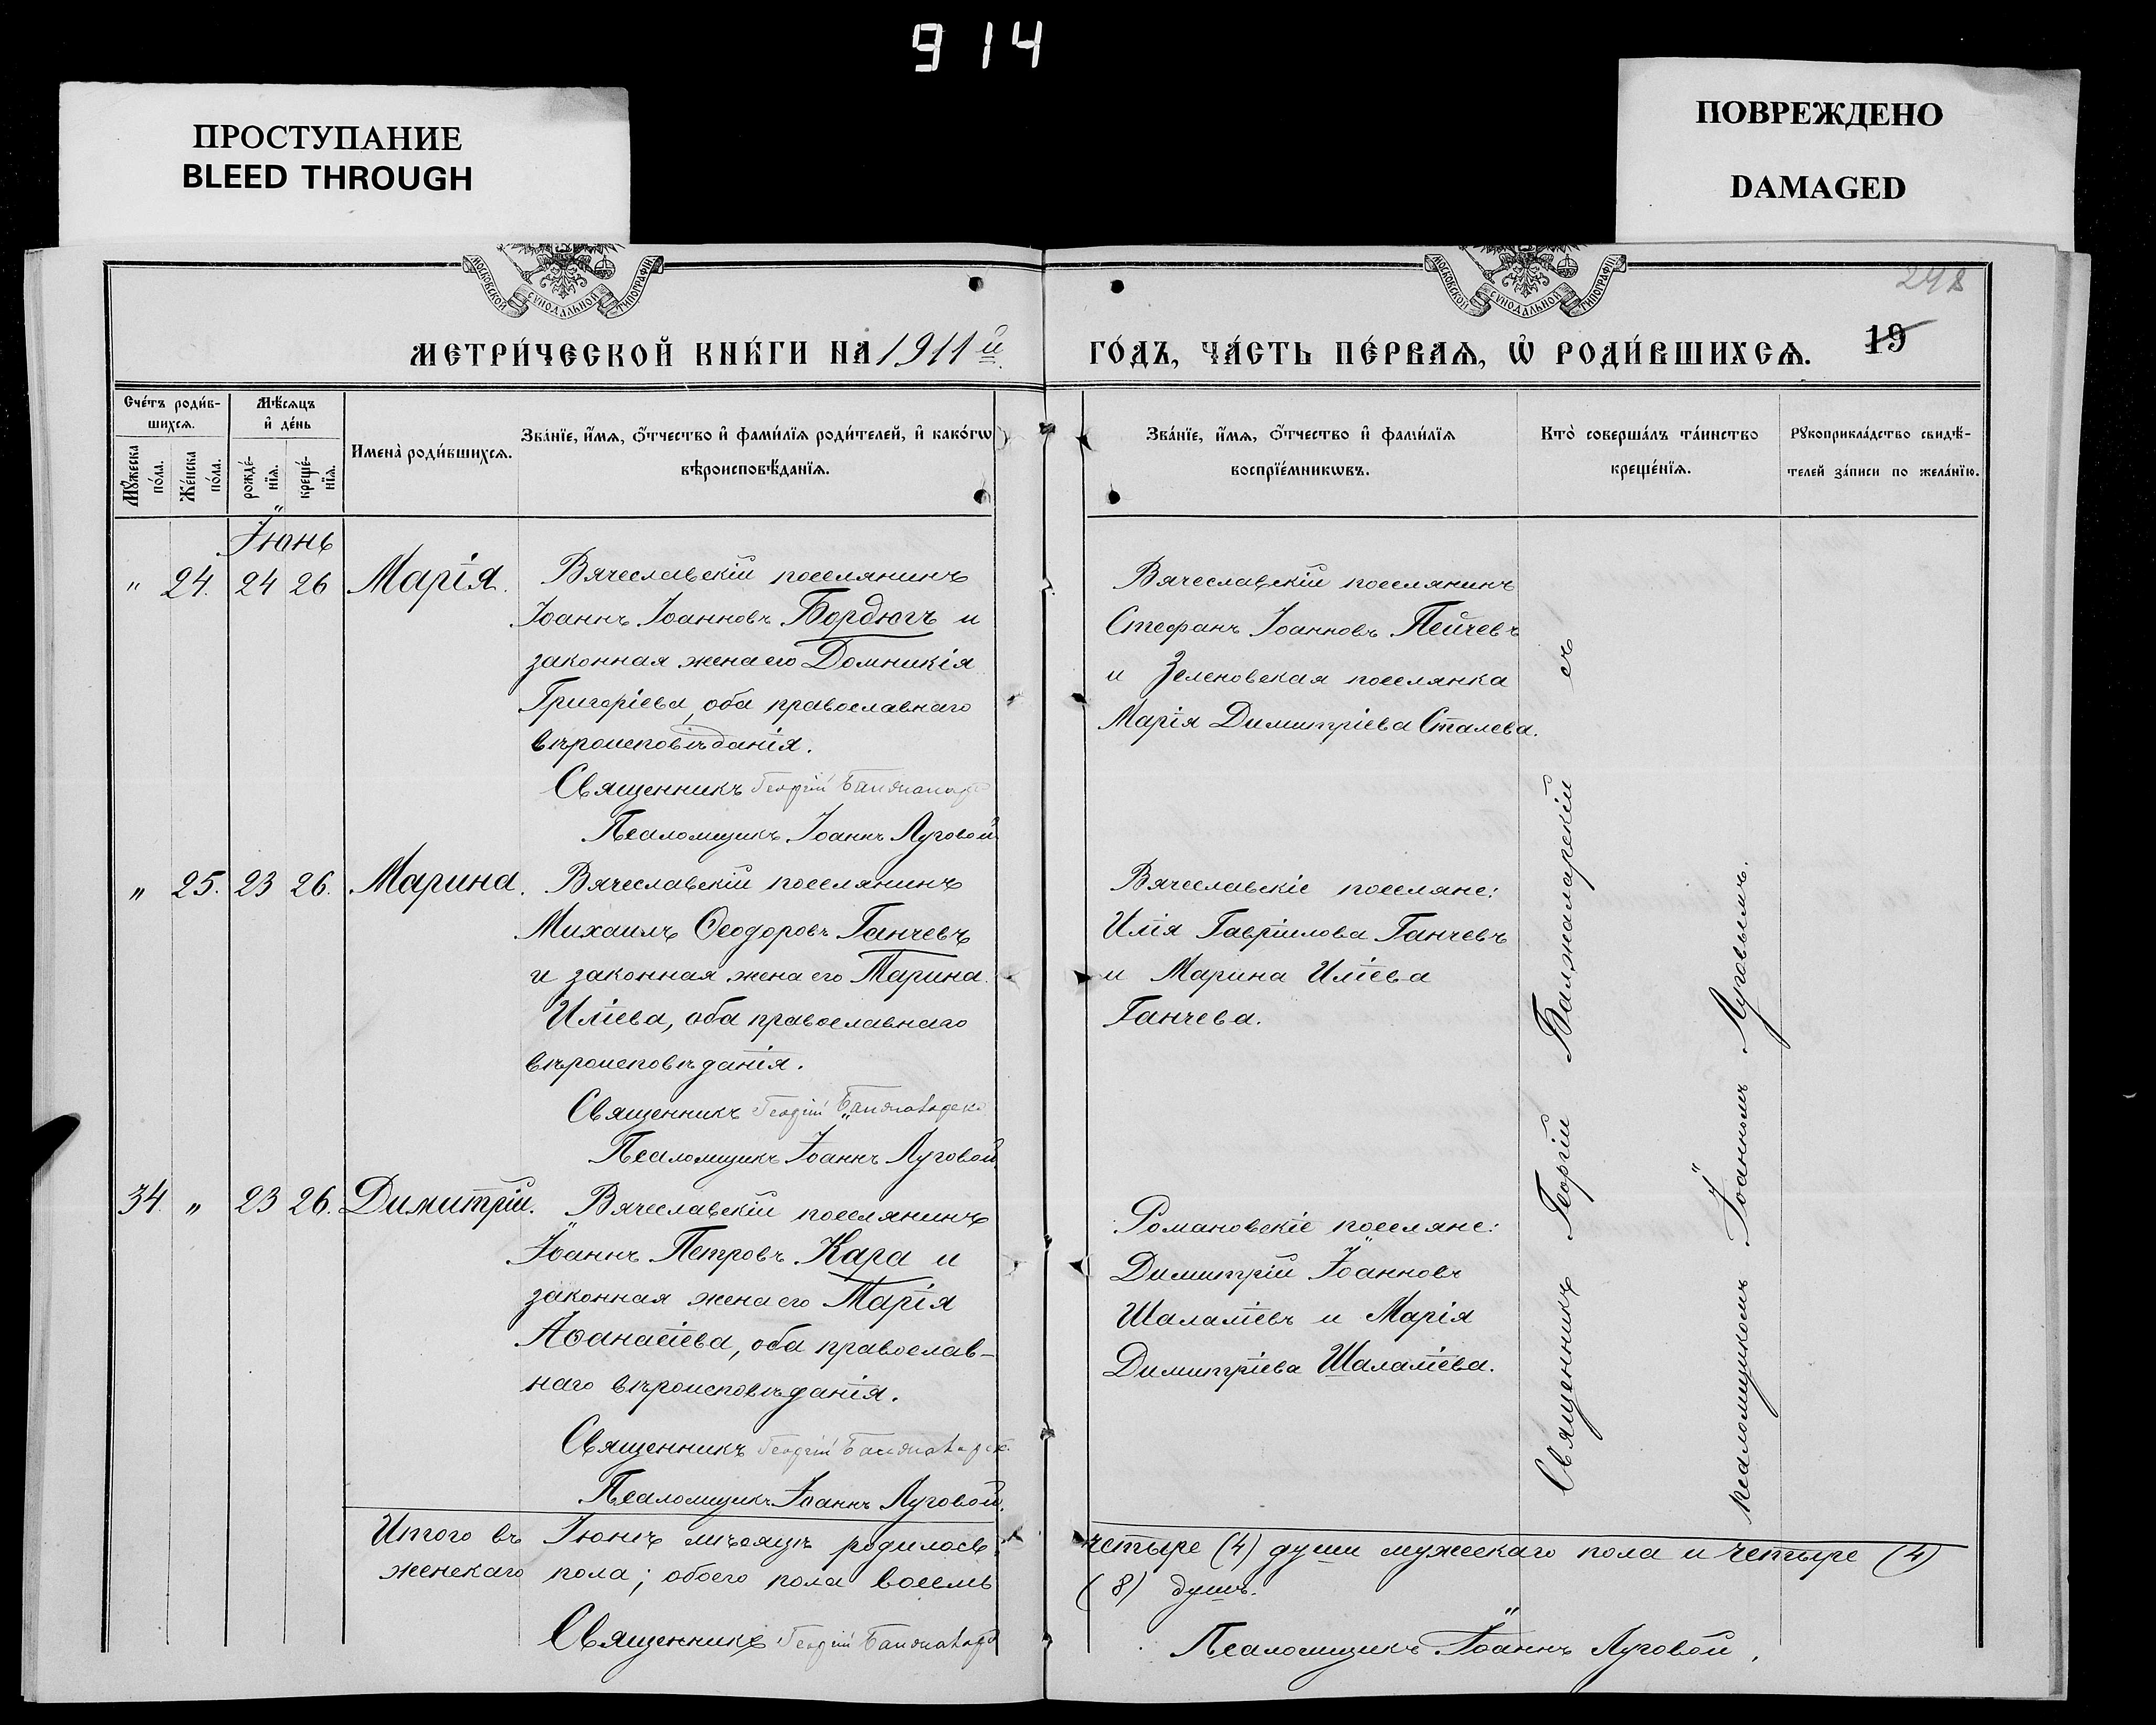 914
ПРОСТУПАНИЕ
BLEED THROUGH
ПОВРЕЖДЕНО
DAMAGED
МОСКОВСКОЙ СѴНОДАЛЬНОЙ ТИПОГРАФІИ
МОСКОВСКОЙ СѴНОДАЛЬНОЙ ТИПОГРАФІИ
248
19
МЕТРИ́ЧЕСКОЙ КНИ́ГИ НА 1911 й
ГО́ДЪ, ЧА́СТЬ ПЕ́РВАѦ, Ѡ҆ РОДИ́ВШИХСѦ.
Сче́тъ роди́в-
шихсѧ.
Мꙋ́жеска по́ла.
Же́нска по́ла.
Мѣ́сѧцъ
и҆ де́нь
рожде́-
нїѧ.
креще́-
нїѧ.
Имена̀ роди́вшихсѧ.
Зва́нїе, и҆́мѧ, ѻ҆́тчество и҆ фами́лїѧ роди́телей, и҆ како́гѡ
вѣроисповѣ́данїѧ.
Зва́нїе, и҆́мѧ, ѻ҆́тчество и҆ фами́лїѧ
воспрїе́мникѡвъ.
Кто̀ соверша́лъ та́инство
креще́нїѧ.
Рꙋкоприкла́дство свидѣ́-
телей за́писи по жела́нїю.
Іюнь
" 24. 24 26 Марія.
Вячеславскій поселянинъ
Іоаннъ Іоанновъ Бордюгъ и
законная жена его Домникія
Григоріева, оба православнаго
вѣроисповѣданія.
Священникъ Георгій
Псаломщикъ Іоаннъ Луговой
Вячеславскій поселянинъ
Стефанъ Іоанновъ Пейчевъ
и Зеленовская поселянка
Марія Димитріева Сталева.
" 25. 23 26. Марина.
Вячеславскій поселянинъ
Михаилъ Ѳеодоровъ Ганчевъ
и законная жена его Марина
Иліева, оба православнаго
вѣроисповѣданія.
Священникъ Георгій
Псаломщикъ Іоаннъ Луговой
Вячеславскіе поселяне:
Илія Гавріилова Ганчевъ
и Марина Иліева
Ганчева.
34. " 23 26. Димитрій.
Вячеславскій поселянинъ
Іоаннъ Петровъ Кара и
законная жена его Марія
Аѳанасіева, оба православ-
наго вѣроисповѣданія.
Священникъ Георгій
Псаломщикъ Іоаннъ Луговой.
Романовскіе поселяне:
Димитрій Іоанновъ
Шаламіевъ и Марія
Димитріева Шаламіева.
Священникъ Георгій Балжаларскій съ
псаломщикомъ Іоанномъ Луговымъ.
Итого въ Іюнѣ мѣсяцѣ родилось: четыре (4) души мужескаго пола и четыре (4)
женскаго пола; обоего пола восемь (8) душъ.
Священникъ Георгій
Псаломщикъ Іоаннъ Луговой.